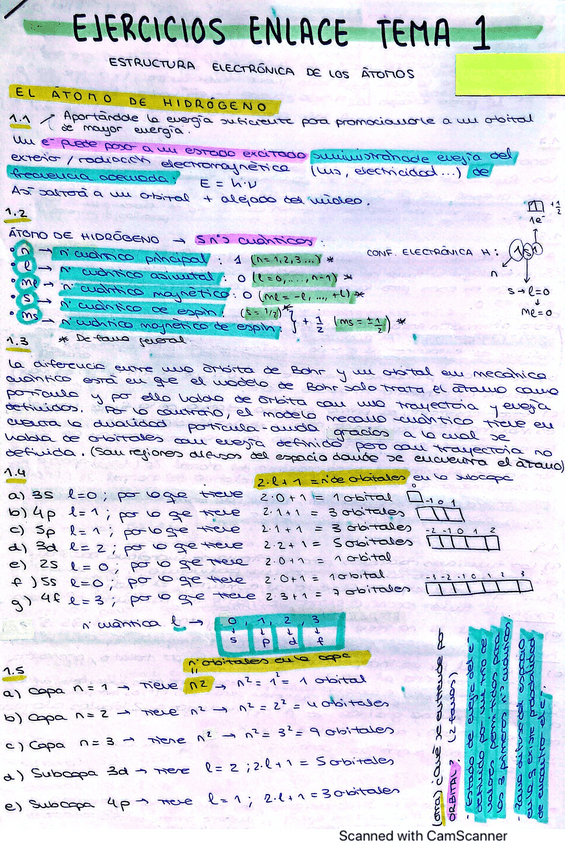 EJERCICIOS ENLACE TEMA 1
ESTRUCTURA ELECTRÓNICA DE LOS ÁTOMOS
EL ÁTOMO DE HIDRÓGENO
1.1 Aportándole la energía suficiente para promocionarle a un orbital
de mayor energía.
Un e⁻ puede pasar a un estado excitado suministrándole energía del
exterior / radiación electromagnética (luz, electricidad...) de
frecuencia adecuada. E = h·ν
Así saltará a un orbital + alejado del núcleo.
1.2
ÁTOMO DE HIDRÓGENO → 5 nºs cuánticos:
• n → nº cuántico principal: 1 (n=1,2,3...) *
• l → nº cuántico azimutal: 0 (l=0,...,n-1) *
• ml → nº cuántico magnético: 0 (ml=-l,...,+l) *
• s → nº cuántico de espin: (s=1/2) *
• ms → nº cuántico magnético de espin } + 1/2 (ms=±1/2) *
* De forma general
CONF. ELECTRÓNICA H: 1s1
n
s → l=0
ml=0
+1/2
1e⁻
1.3
La diferencia entre una órbita de Bohr y un orbital en mecánica
cuántica está en que el modelo de Bohr solo trata el átomo como
partícula y por ello habla de órbita con una trayectoria y energía
definidas. Por lo contrario, el modelo mecano-cuántico tiene en
cuenta la dualidad partícula-onda gracias a lo cual se
habla de orbitales con energía definida pero con trayectoria no
definida. (Son regiones difusas del espacio donde se encuentra el átomo)
1.4
2·l+1 = nº de orbitales en la subcapa
a) 3s l=0; por lo que tiene 2·0+1 = 1 orbital
b) 4p l=1; por lo que tiene 2·1+1 = 3 orbitales
-1 0 1
c) 5p l=1; por lo que tiene 2·1+1 = 3 orbitales
d) 3d l=2; por lo que tiene 2·2+1 = 5 orbitales
-2 -1 0 1 2
e) 2s l=0; por lo que tiene 2·0+1 = 1 orbital
f) 5s l=0; por lo que tiene 2·0+1 = 1 orbital
g) 4f l=3; por lo que tiene 2·3+1 = 7 orbitales
nº cuántico l → 0, 1, 2, 3
s p d f
1.5
nº orbitales en la capa
a) Capa n=1 → tiene n2 → n²=1²= 1 orbital
b) Capa n=2 → tiene n² → n²=2²= 4 orbitales
c) Capa n=3 → tiene n² → n²=3²= 9 orbitales
d) Subcapa 3d → tiene l=2; 2·l+1 = 5 orbitales
e) Subcapa 4p → tiene l=1; 2·l+1 = 3 orbitales
(otra) ¿Qué se entiende por
ORBITAL? (2 formas)
- Estado de energía del e⁻
definido por un trío de
valores permitidos para
los 3 primeros nºs cuánticos.
- Zona difusa del espacio
en la q existe probabilidad
de encontrar al e⁻.
Scanned with CamScanner